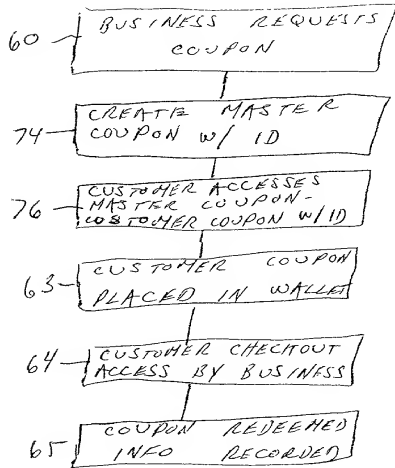 60
BUSINESS REQUESTS
COUPON
74
CREATE MASTER
COUPON W/ ID
76
CUSTOMER ACCESSES
MASTER COUPON-
CUSTOMER COUPON W/ID
63
CUSTOMER COUPON
PLACED IN WALLET
64
CUSTOMER CHECKOUT
ACCESS BY BUSINESS
65
COUPON REDEEMED
INFO RECORDED